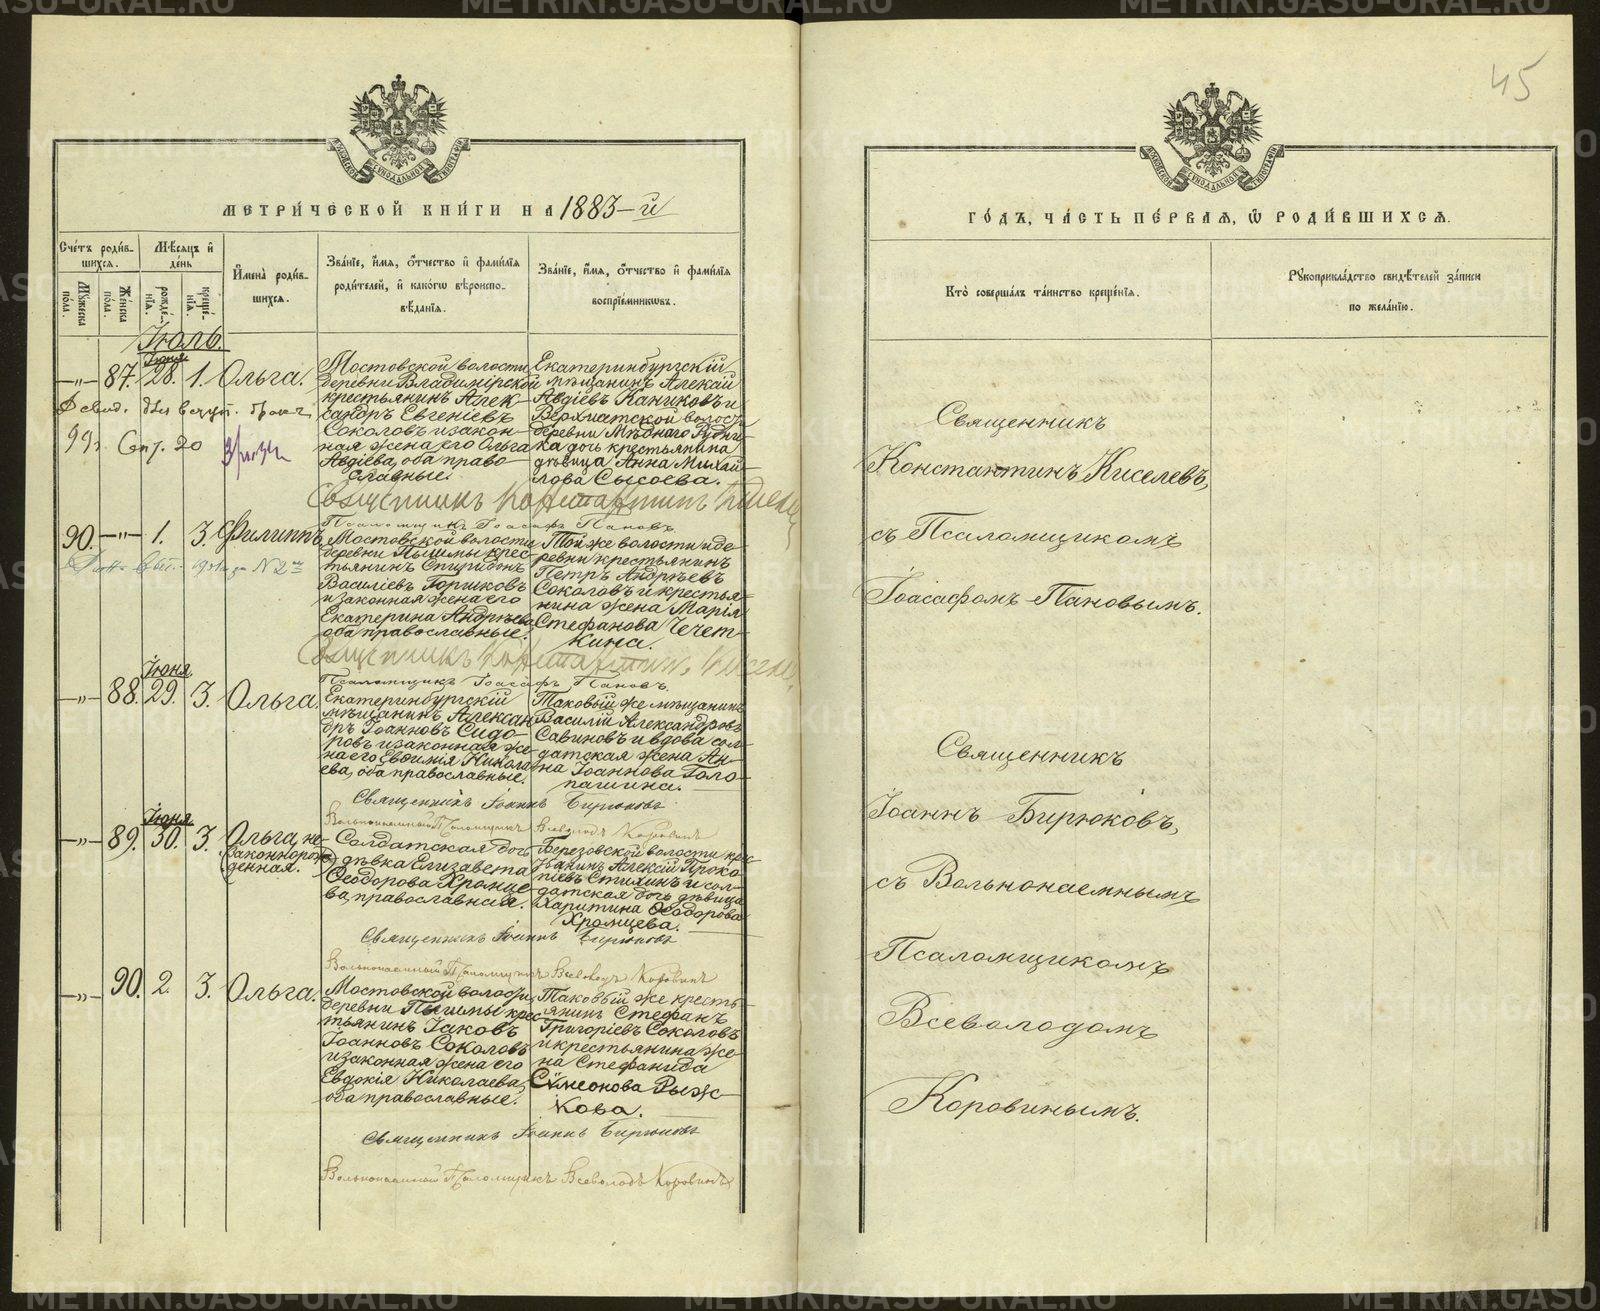 45
МОСКОВСКОЙ СѴНОДАЛЬНОЙ ТИПОГРАФІИ
МОСКОВСКОЙ СѴНОДАЛЬНОЙ ТИПОГРАФІИ
МЕТРИ́ЧЕСКОЙ КНИ́ГИ НА 1883-й
Сче́тъ роди́в-
шихся.
Мꙋжеска пола.
Же́нска пола.
Мѣ́сяцъ и҆
де́нь
рожде́-
нїя.
креще́-
нїя.
И҆мена̀ роди́в-
шихся.
Зва́нїе, и҆́мя, ѻ҆́тчество и҆ фами́лїя
роди́телей, и҆ како́гѡ вѣроиспо-
вѣ́данїя.
Зва́нїе, и҆́мя, ѻ҆́тчество и҆ фами́лїя
воспрїе́мникѡвъ.
Іюль.
Іюня
—„— 87. 28. 1. Ольга.
Мостовской волости
деревни Владимірской
крестьянинъ Алек-
сандръ Евгеніевъ
Соколовъ и закон-
ная жена его Ольга
Авдіева, оба право-
славные.
Екатеринбургскій
мѣщанинъ Алексій
Авдіевъ Каниковъ и
Верхиетской волос.
деревни Мѣднаго Рудни-
ка дочь крестьянина
дѣвица Анна Михаи-
лова Сысоева.
99г. Сент. 20
Священникъ Константинъ Киселевъ
Псаломщикъ Іоасафъ Пановъ.
90. —„— 1. 3. Филиппъ.
Мостовской волости
деревни Пышмы крес-
тьянинъ Спиридонъ
Василіевъ Горшковъ
и законная жена его
Екатерина Андрѣева
оба православные.
Той же волости и де-
ревни крестьянинъ
Петръ Андрѣевъ
Соколовъ и крестья-
нина жена Марія
Стефанова Чечет-
кина.
Священникъ Константинъ Киселевъ
Псаломщикъ Іоасафъ Пановъ.
Іюня
—„— 88. 29. 3. Ольга.
Екатеринбургскій
мѣщанинъ Алексан
дръ Іоанновъ Сидо-
ровъ и законная же-
на его Евѳимія Никола-
ева, оба православные.
Таковый же мѣщанинъ
Василій Александровъ
Савиновъ и вдова сол-
датская жена Ан-
на Іоаннова Голо-
пашина.
Священникъ Іоаннъ Бирюковъ
Вольнонаемный Псаломщикъ Всеволодъ Коровинъ
Іюня
—„— 89. 30. 3. Ольга, не-
законнорож-
денная.
Солдатская дочь
дѣвка Елизавета
Ѳеодорова Хромце-
ва, православная.
Березовской волости крес-
тьянинъ Алексій Проко-
піевъ Стихинъ и сол-
датская дочь дѣвица
Харитина Ѳеодорова
Хромцева.
Священникъ Іоаннъ Бирюковъ
Вольнонаемный Псаломщикъ Всеволодъ Коровинъ
—„— 90. 2. 3. Ольга.
Мостовской волости
деревни Пышмы крес-
тьянинъ Іаковъ
Іоанновъ Соколовъ
и законная жена его
Евдокія Николаева,
оба православные.
Таковый же кресть-
янинъ Стефанъ
Григоріевъ Соколовъ
и крестьянина же-
на Стефанида
Сѵмеонова Рыж-
кова.
Священникъ Іоаннъ Бирюковъ
Вольнонаемный Псаломщикъ Всеволодъ Коровинъ
ГО́ДЪ, ЧА́СТЬ ПЕ́РВАЯ, Ѡ҆ РОДИ́ВШИХСЯ.
Кто̀ соверша́лъ та́инство креще́нїя.
Рꙋкоприкла́дство свидѣ́телей за́писи
по жела́нїю.
Священникъ
Константинъ Киселевъ,
съ Псаломщикомъ
Іоасафомъ Пановымъ.
Священникъ
Іоаннъ Бирюковъ,
съ Вольнонаемнымъ
Псаломщикомъ
Всеволодомъ
Коровинымъ.
METRIKI.GASO-URAL.RU